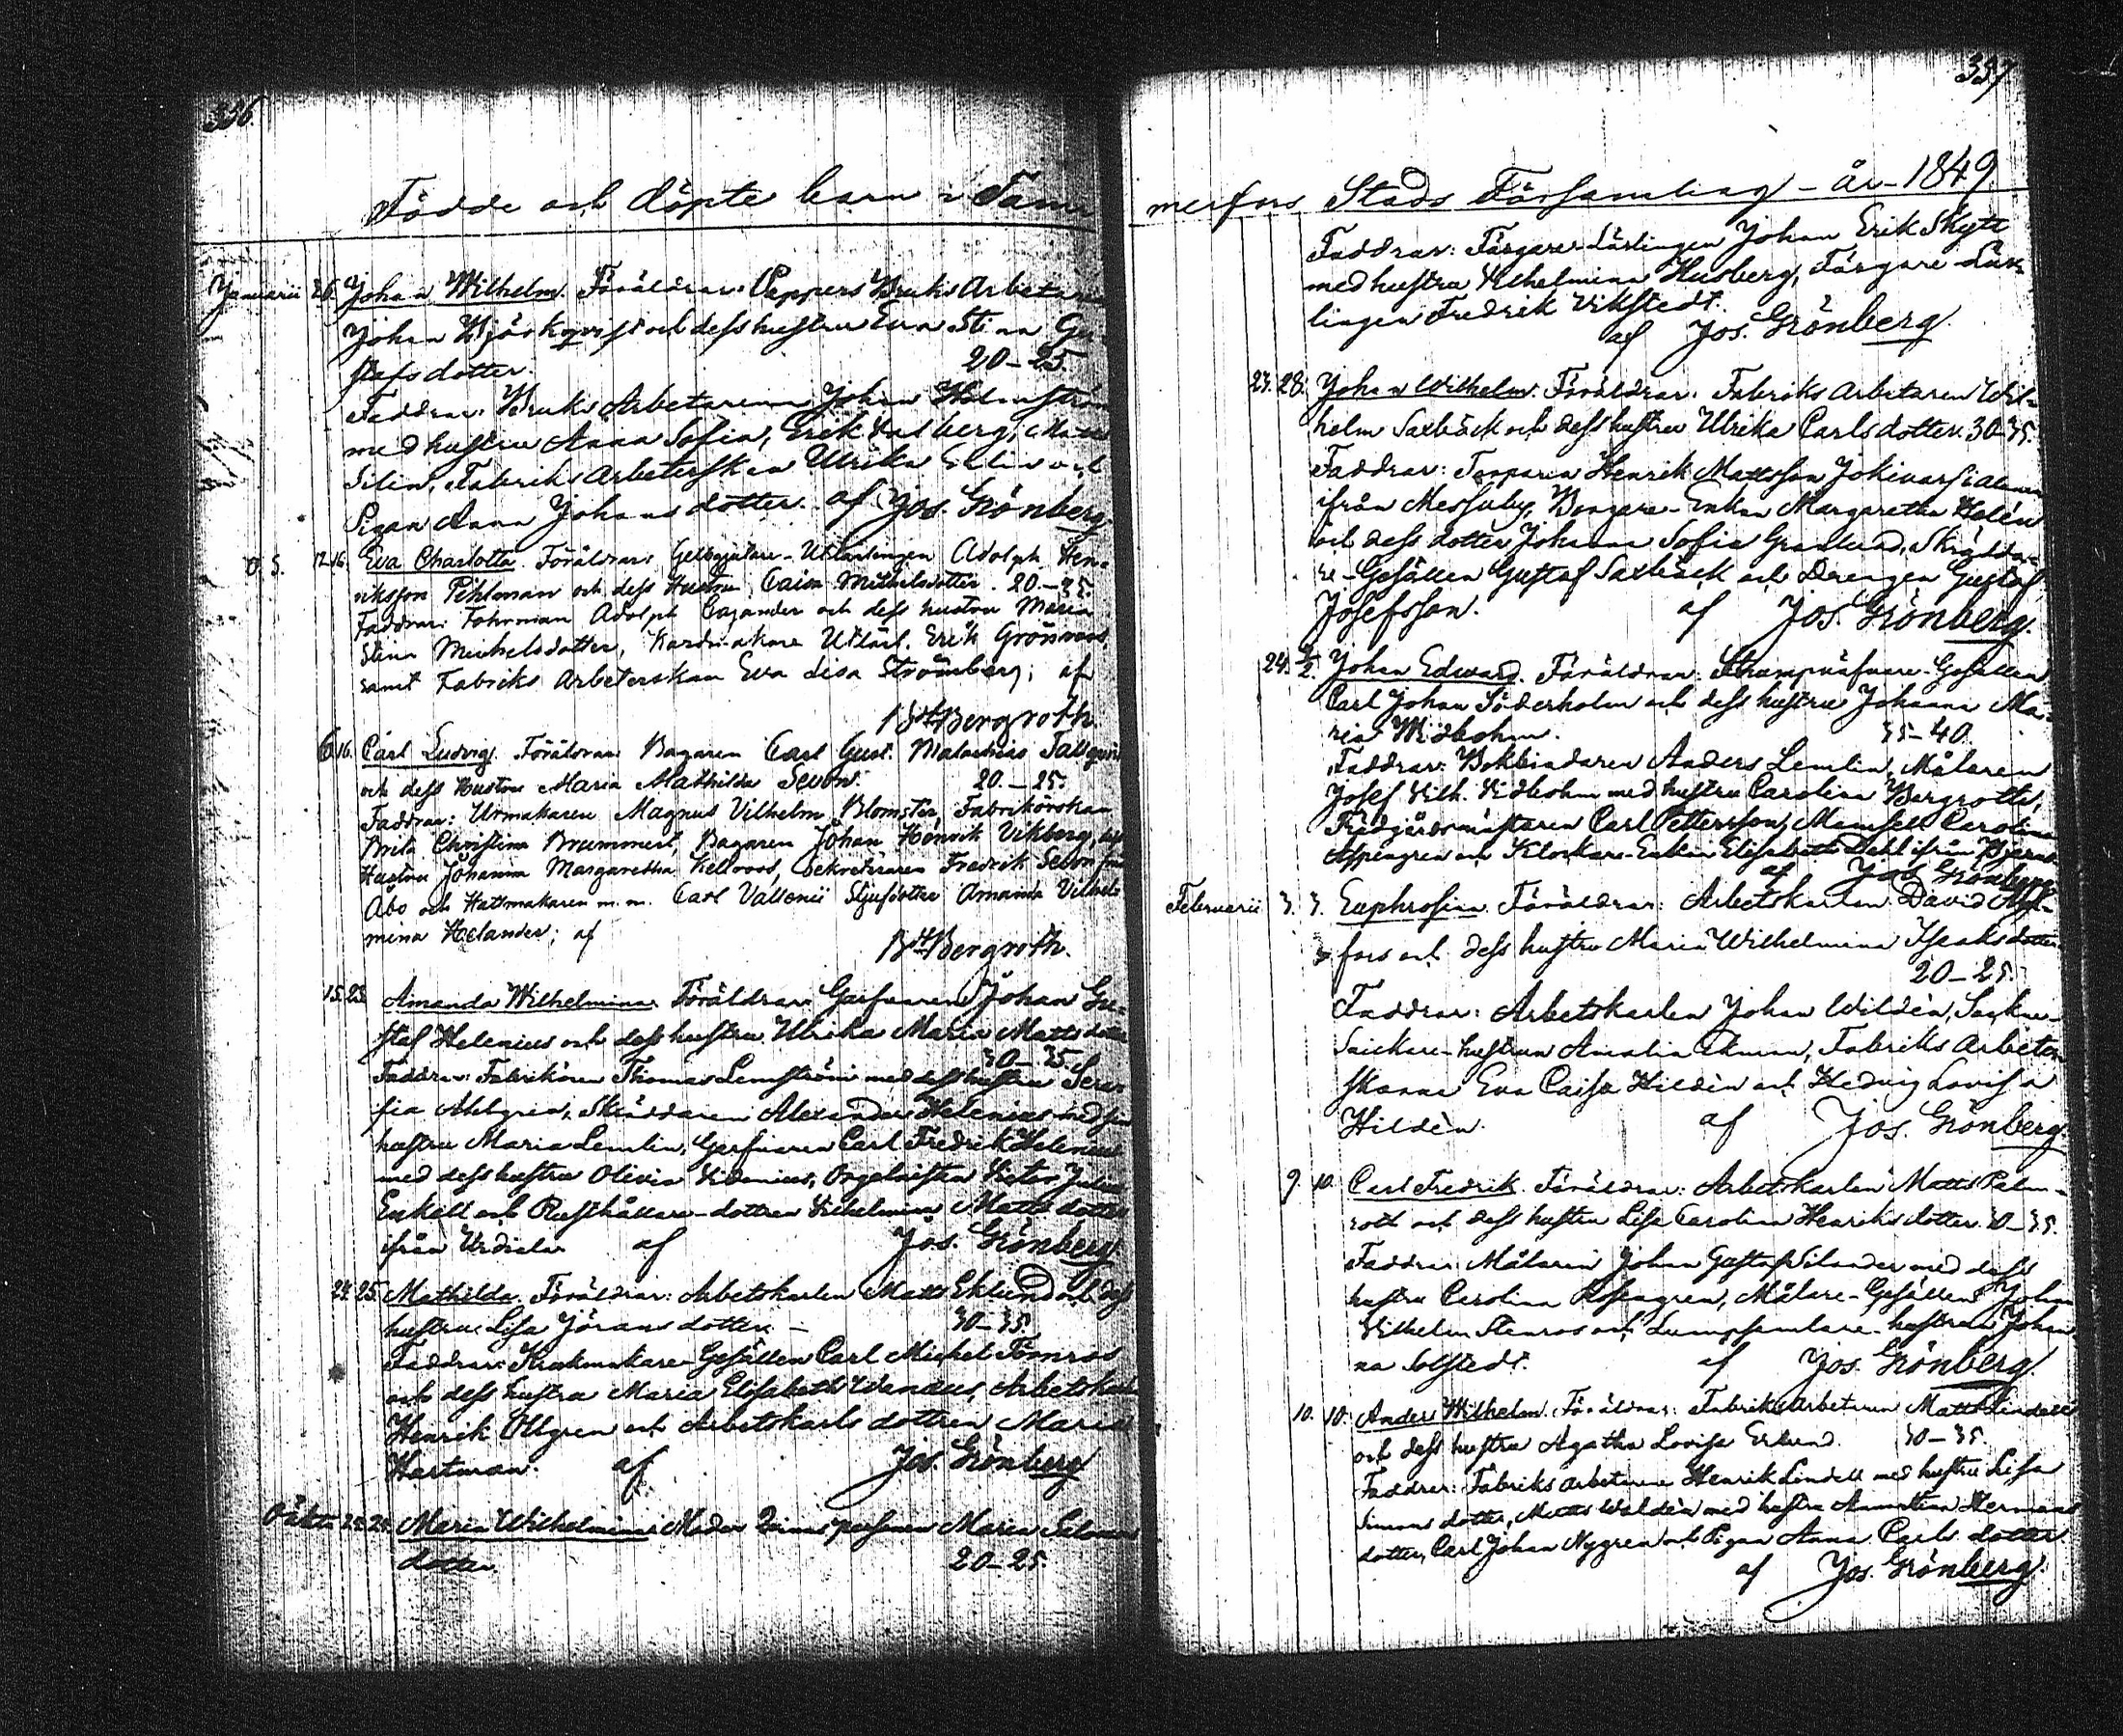 336.
Födde och döpte barn i Tam
Januarii 26. Johan Wilhelm. Föräldrar: Pappers Bruks Arbetaren
Johan Björkqvist och dess hustru Eva Stina Gu-
stafsdotter. 20-25.
Faddrar: Bruks Arbetarena Johan Holmström
med hustru Anna Sofia, Erik
Silin, Fabriks Arbeterskan Ulrika Elin och
Pigan Anna Johansdotter. af Jos. Grönberg
12. 16. Eva Charlotta. Föräldrar: Gelbgjutare-Utlärlingen Adolph Hen-
riksson Pihlman och dess Hustru Caisa Michelsdotter. 20-25.
Faddrar: Fohrman Adolph Cajander och dess hustru Maria
Stina Michelsdotter, Kardmakare Utlärl. Erik Grönroos,
samt Fabriks Arbeterskan Eva Lisa Strömberg; af
Bergroth.
6. 16. Carl Ludvig. Föräldrar: Bagaren Carl Gust. Malachias Tallqvist
och dess Hustru Maria Mathilda Sevon. 20.-25.
Faddrar: Urmakaren Magnus Vilhelm Blomster, Fabrikörskan
Brita Christina Brummert, Bagaren Johan Henrik Vikberg,
Hustru Johanna Margaretha Kellroos, Sekreteraren Fredrik Sevon från
Åbo och Hattmakaren m.m. Carl Vallenii Stjufdotter Amanda Vilhel-
mina Helander; af
Bergroth.
15. 23. Amanda Wilhelmina. Föräldrar: Garfvaren Johan Gu-
staf Helenius och dess hustru Ulrika Maria Mattsdotter
30-35.
Faddrar: Fabrikören Thomas Lemström med dess hustru Sera-
fia Ahlgren, Skräddaren Alexander Helenius med sin
hustru Maria Lemlin, Garfvaren Carl Fredrik Helenius
med dess hustru Olivia Videnius, Orgelnisten Victor Julius
Enkell och Rusthållare-dottren Vilhelmina Mattsdotter
ifrån Urdiala af Jos. Grönberg.
24. 25. Mathilda. Föräldrar: Arbetskarlen Matts Eklund och dess
hustru Lisa Jöransdotter. - 30-35.
Faddrar: Krukmakare-Gesällen Carl Michel Törnroos
och dess hustru Maria Elisabeth Wendus, Arbetskarl
Henrik Ollgren och Arbetskarls dottren Maria
Hartman. af Jos. Grönberg
Oäkta 24. 24. Maria Wilhelmina. Moder Qvinspersonen Maria Salomons
dotter. 20-25.
337
merfors Stads Församling - år - 1849.
Faddrar: Färgare-Lärlingen Johan Erik Skytt
med hustru Vilhelmina Husberg, Färgare-Lär-
lingen Fredrik Vikstedt.
af Jos. Grönberg.
27. 28. Johan Wilhelm. Föräldrar: Fabriks Arbetaren Wil-
helm Saxbäck och dess hustru Ulrika Carlsdotter. 30-35.
Faddrar: Torparen Henrik Mattsson
ifrån Messuby, Borgare-Enkan Margaretha Helén
och dess dotter Johanna Sofia Granlund, Skrädda-
re-Gesällen Gustaf Saxbäck och Drengen Gustaf
Josefsson. af Jos. Grönberg.
24. 2/2. Johan Edward. Föräldrar: Strumpväfvare-Gesällen
Carl Johan Söderholm och dess hustru Johanna Ma-
ria Widbohm. 35-40.
Faddrar: Bokbindaren Anders Lemlin, Målaren
Josef Vilh. Vidbohm med hustru Carolina Bergroth,
Trädgårdsmästaren Carl Pettersson, Mamsell Carolina
Aspengren och Klockare-Enkan Elisabeth Dahl ifrån
af Jos. Grönberg
Februarii 3. 3. Euphrosina. Föräldrar: Arbetskarlen David
fors och dess hustru Maria Wilhelmina Isaksdotter.
20-25.
Faddrar: Arbetskarlen Johan Wildén,
Snickare-hustrun Amalia Ekman, Fabriks Arbeter-
skorna Eva Caisa Hildén och Hedvig Lovisa
Hildén. af Jos. Grönberg.
9. 10. Carl Fredrik. Föräldrar: Arbetskarlen Matts Palm-
roth och dess hustru Lisa Carolina Henriksdotter. 30-35.
Faddrar: Målaren Johan Gustaf Silander med dess
hustru Carolina Rosengren, Målare-Gesällen Johan
Vilhelm Stenroos och Lumpsamlare-hustrun Johan
na Solstedt. af Jos. Grönberg.
10. 10. Anders Wilhelm. Föräldrar: Fabriks Arbetaren Matts Lindell
och dess hustru Agatha Lovisa Erlund. 30-35.
Faddrar: Fabriks arbetarene Henrik Lindell med hustru Lisa
Simonsdotter, Matts Waldén med hustru Annastina Hermans
dotter, Carl Johan Nygren och Pigan Anna Carlsdotter.
af Jos. Grönberg.